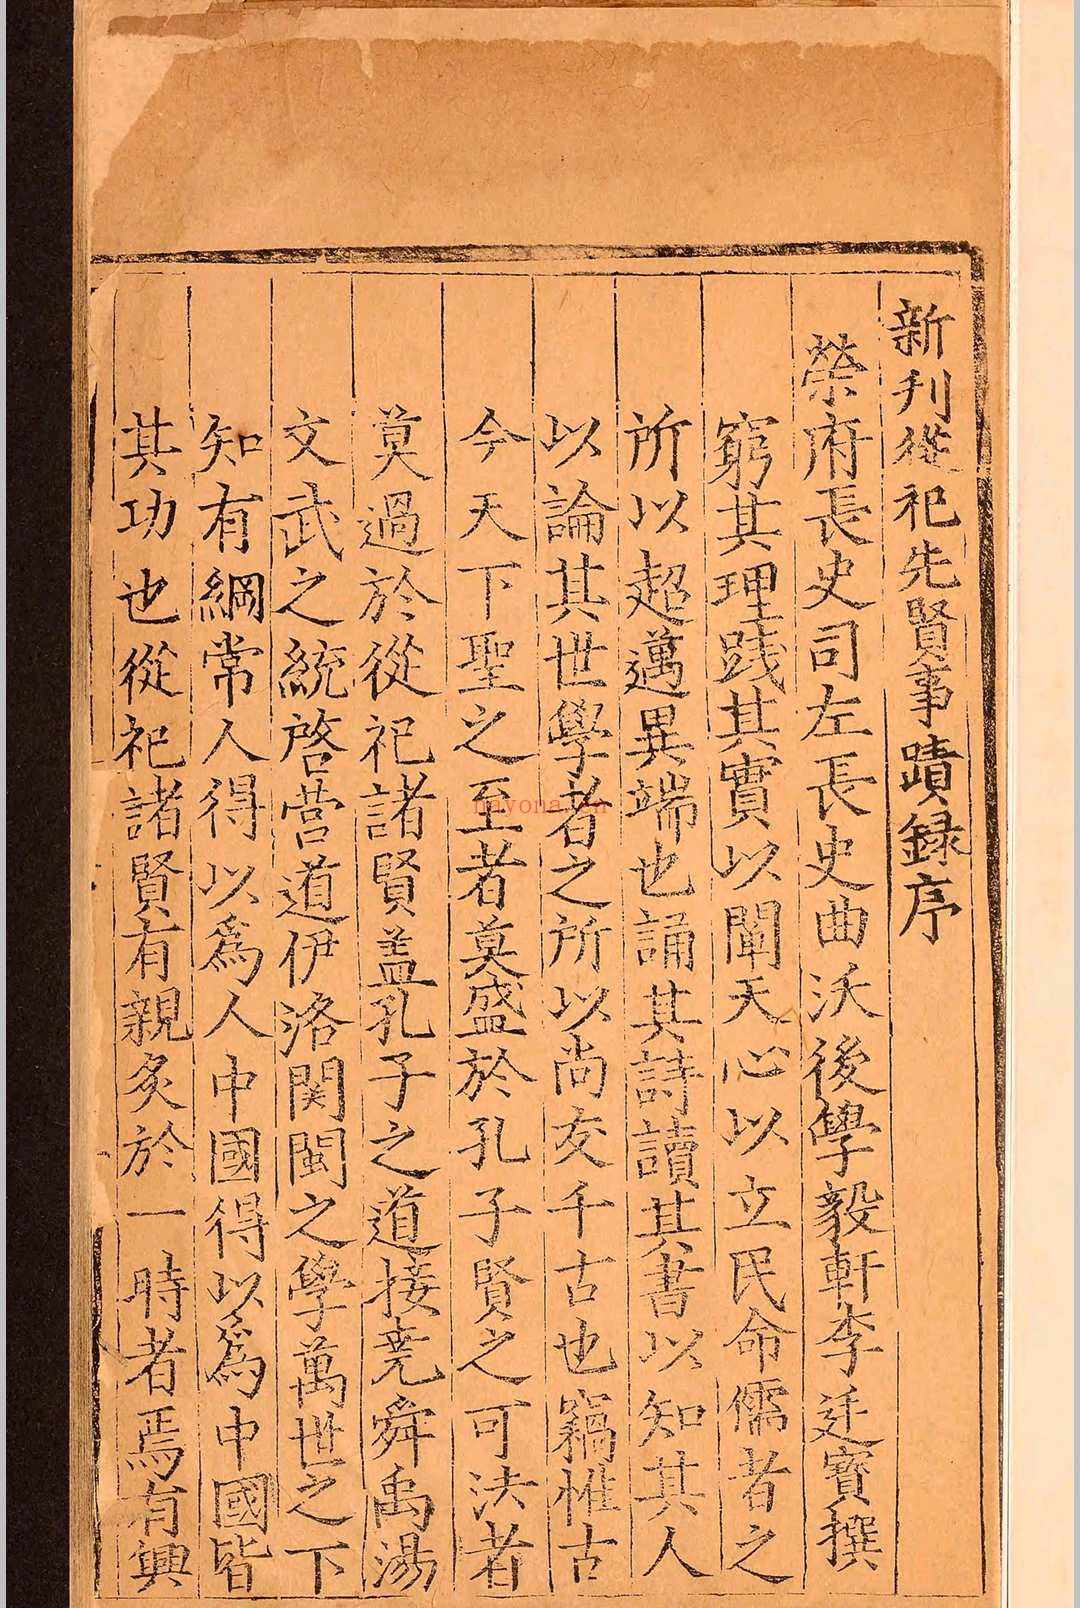 新刋從祀先賢事蹟録序
榮府長史司左長史曲沃後學毅軒李廷寶撰
窮其理踐其實以闡天心以立民命儒者之
所以超邁異端也誦其詩讀其書以知其人
以論其世學者之所以尚友千古也竊惟古
今天下聖之至者莫盛於孔子賢之可法者
莫過於從祀諸賢盖孔子之道接堯舜禹湯
文武之統啓營道伊洛関閩之學萬世之下
知有綱常人得以爲人中國得以爲中國皆
其功也從祀諸賢有親炙於一時者焉有興